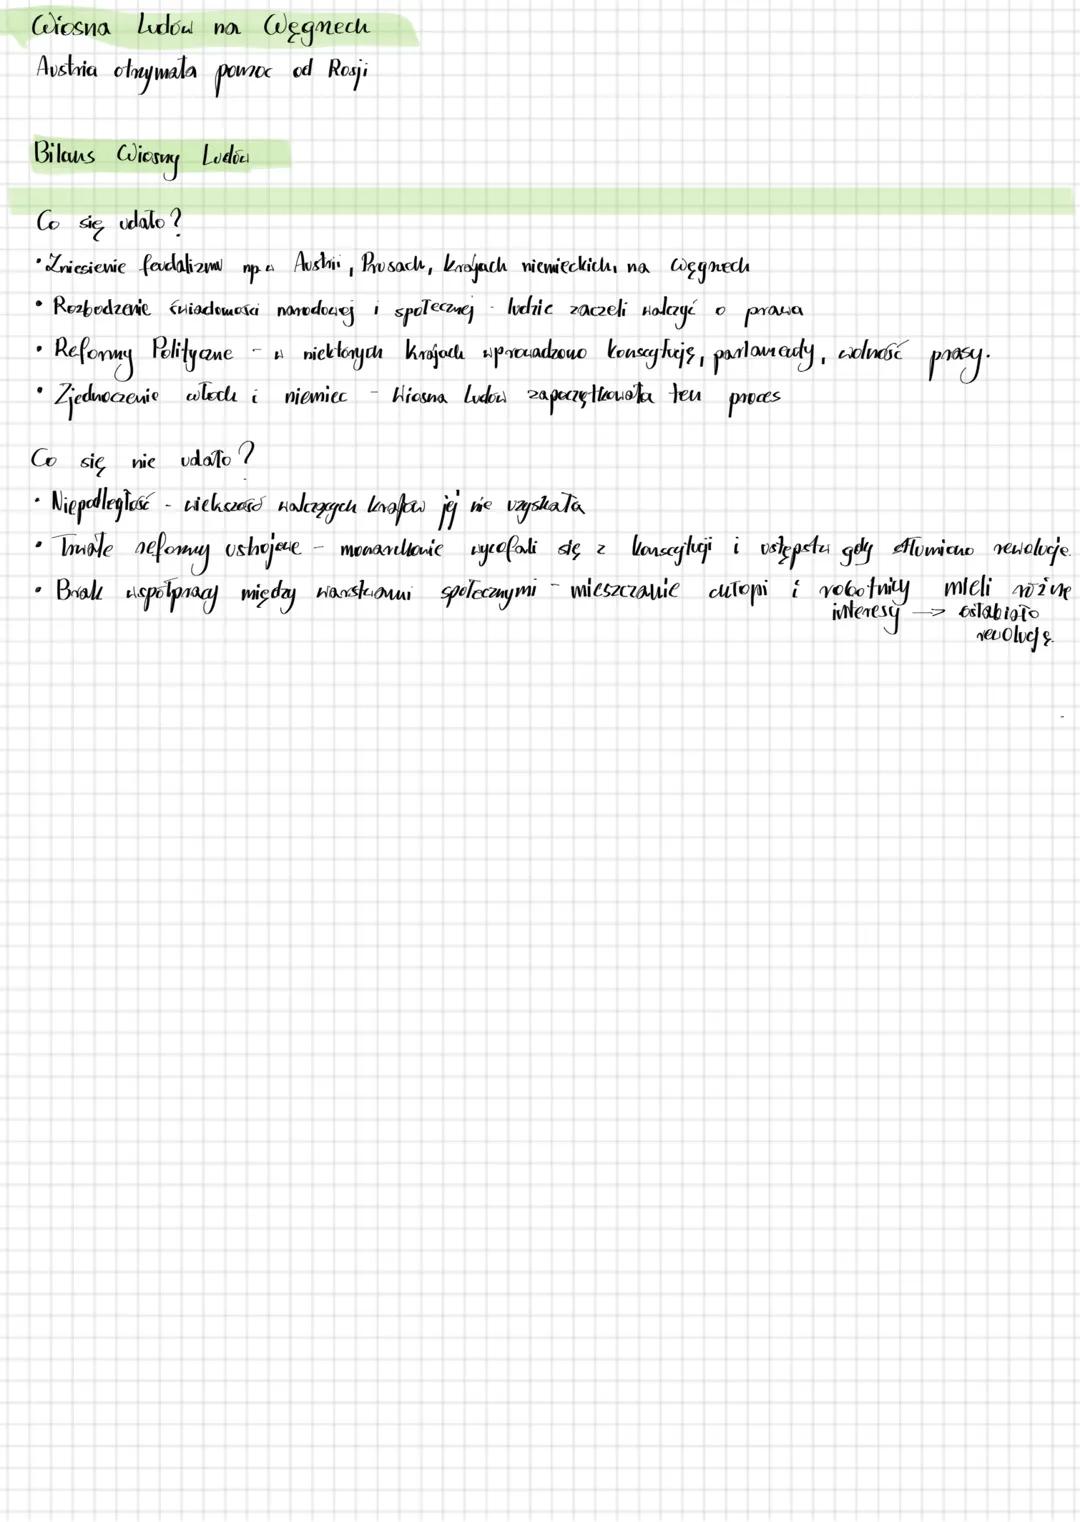 Wiosna Ludów na Węgrzech
Austria otrzymała pomoc od Rosji
Bilans Wiosny Ludów
Co się udało?
• Zniesienie feudalizmu np w Austrii, Prusach, krajach niemieckich, na Węgrzech
• Rozbudzenie świadomości narodowej i społecznej - ludzie zaczeli walczyć o prawa
• Reformy Polityczne - w niektórych krajach wprowadzono konstytucję, parlamenty, wolność prasy.
• Zjednoczenie włoch i niemiec - Wiosna Ludów zapoczątkowała ten proces
Co się nie udało?
• Niepodległość - większość walczących krajów jej nie uzyskała
• Trwałe reformy ustrojowe - monarchowie wycofali się z konstytucji i ustępstw gdy stłumiono rewolucje.
• Brak współpracy między warstwami społecznymi - mieszczanie chłopi i robotnicy mieli różne
interesy → osłabiało
rewolucję.